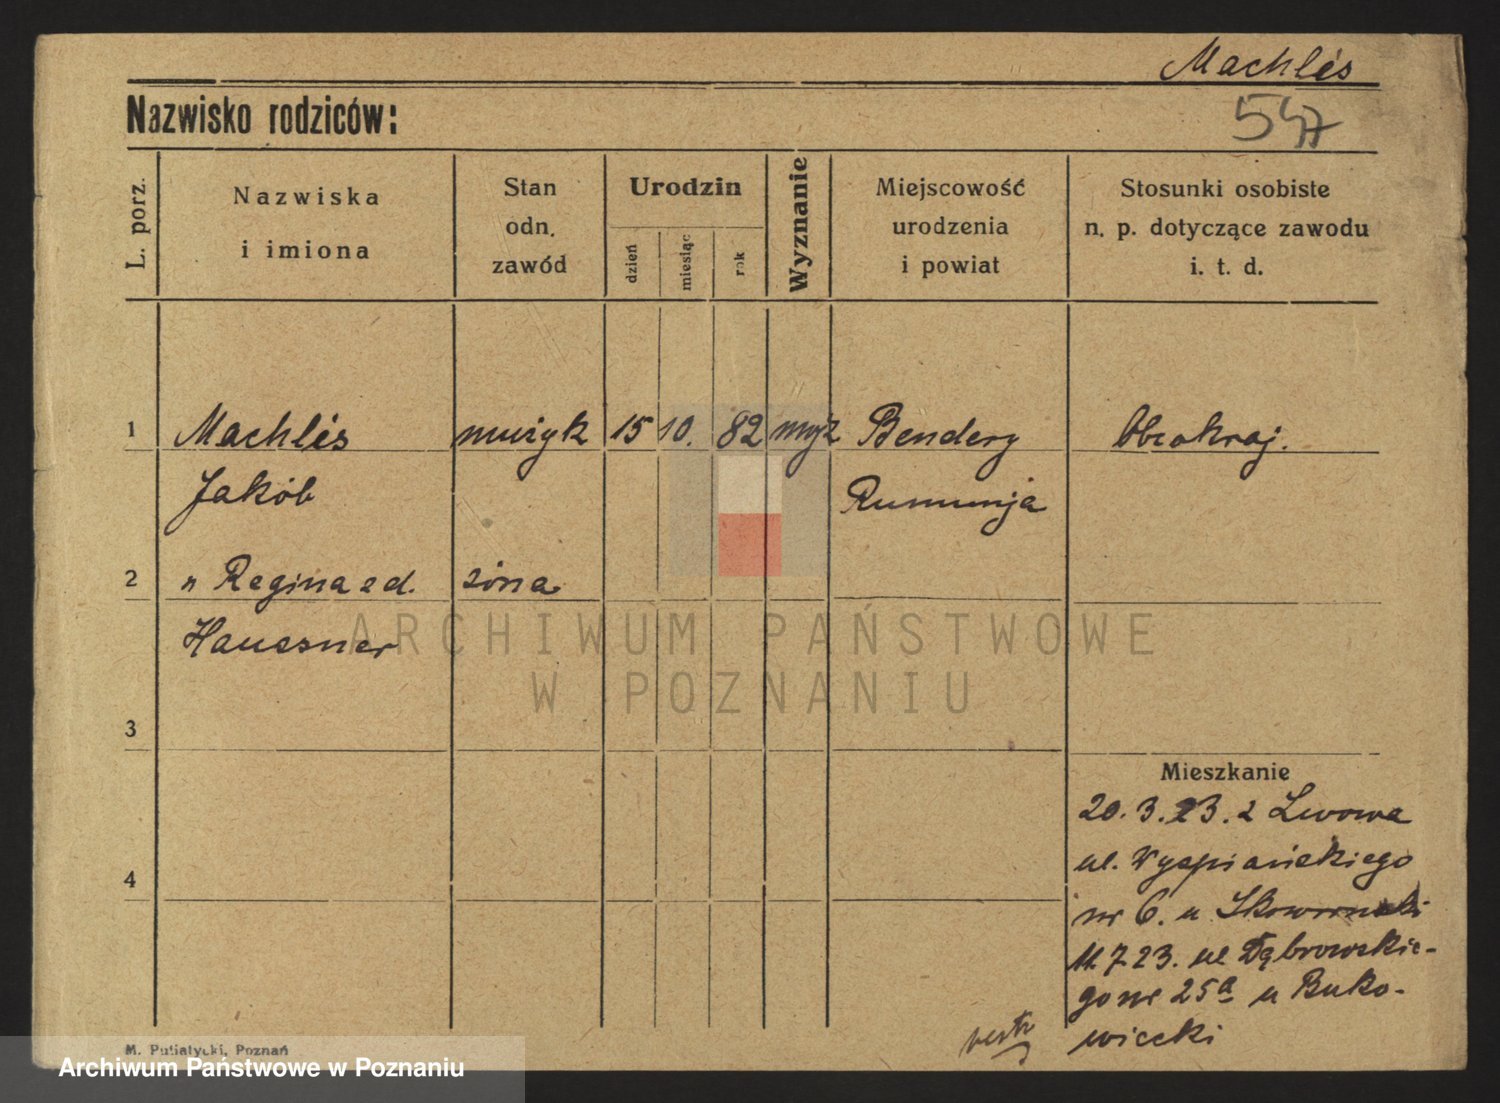 Machlés
Nazwisko rodziców:
547
L. porz.
Nazwiska
i imiona
Stan
odn.
zawód
Urodzin
dzień
miesiąc
rok
Wyznanie
Miejscowość
urodzenia
i powiat
Stosunki osobiste
n. p. dotyczące zawodu
i. t. d.
1 Machlés muzyk 15 10. 82 mojż Bendery Obcokraj.
Jakób Rumunja
2 " Regina z d. żona
Hausner
ARCHIWUM PAŃSTWOWE
W POZNANIU
3
Mieszkanie
20.3.23. z Lwowa
ul. Wyspiańskiego
4
nr 6. u Skowronski
11.7.23. ul Dąbrowskie-
go nr 25a u Buko-
wiecki
M. Putiatycki, Poznań
Archiwum Państwowe w Poznaniu